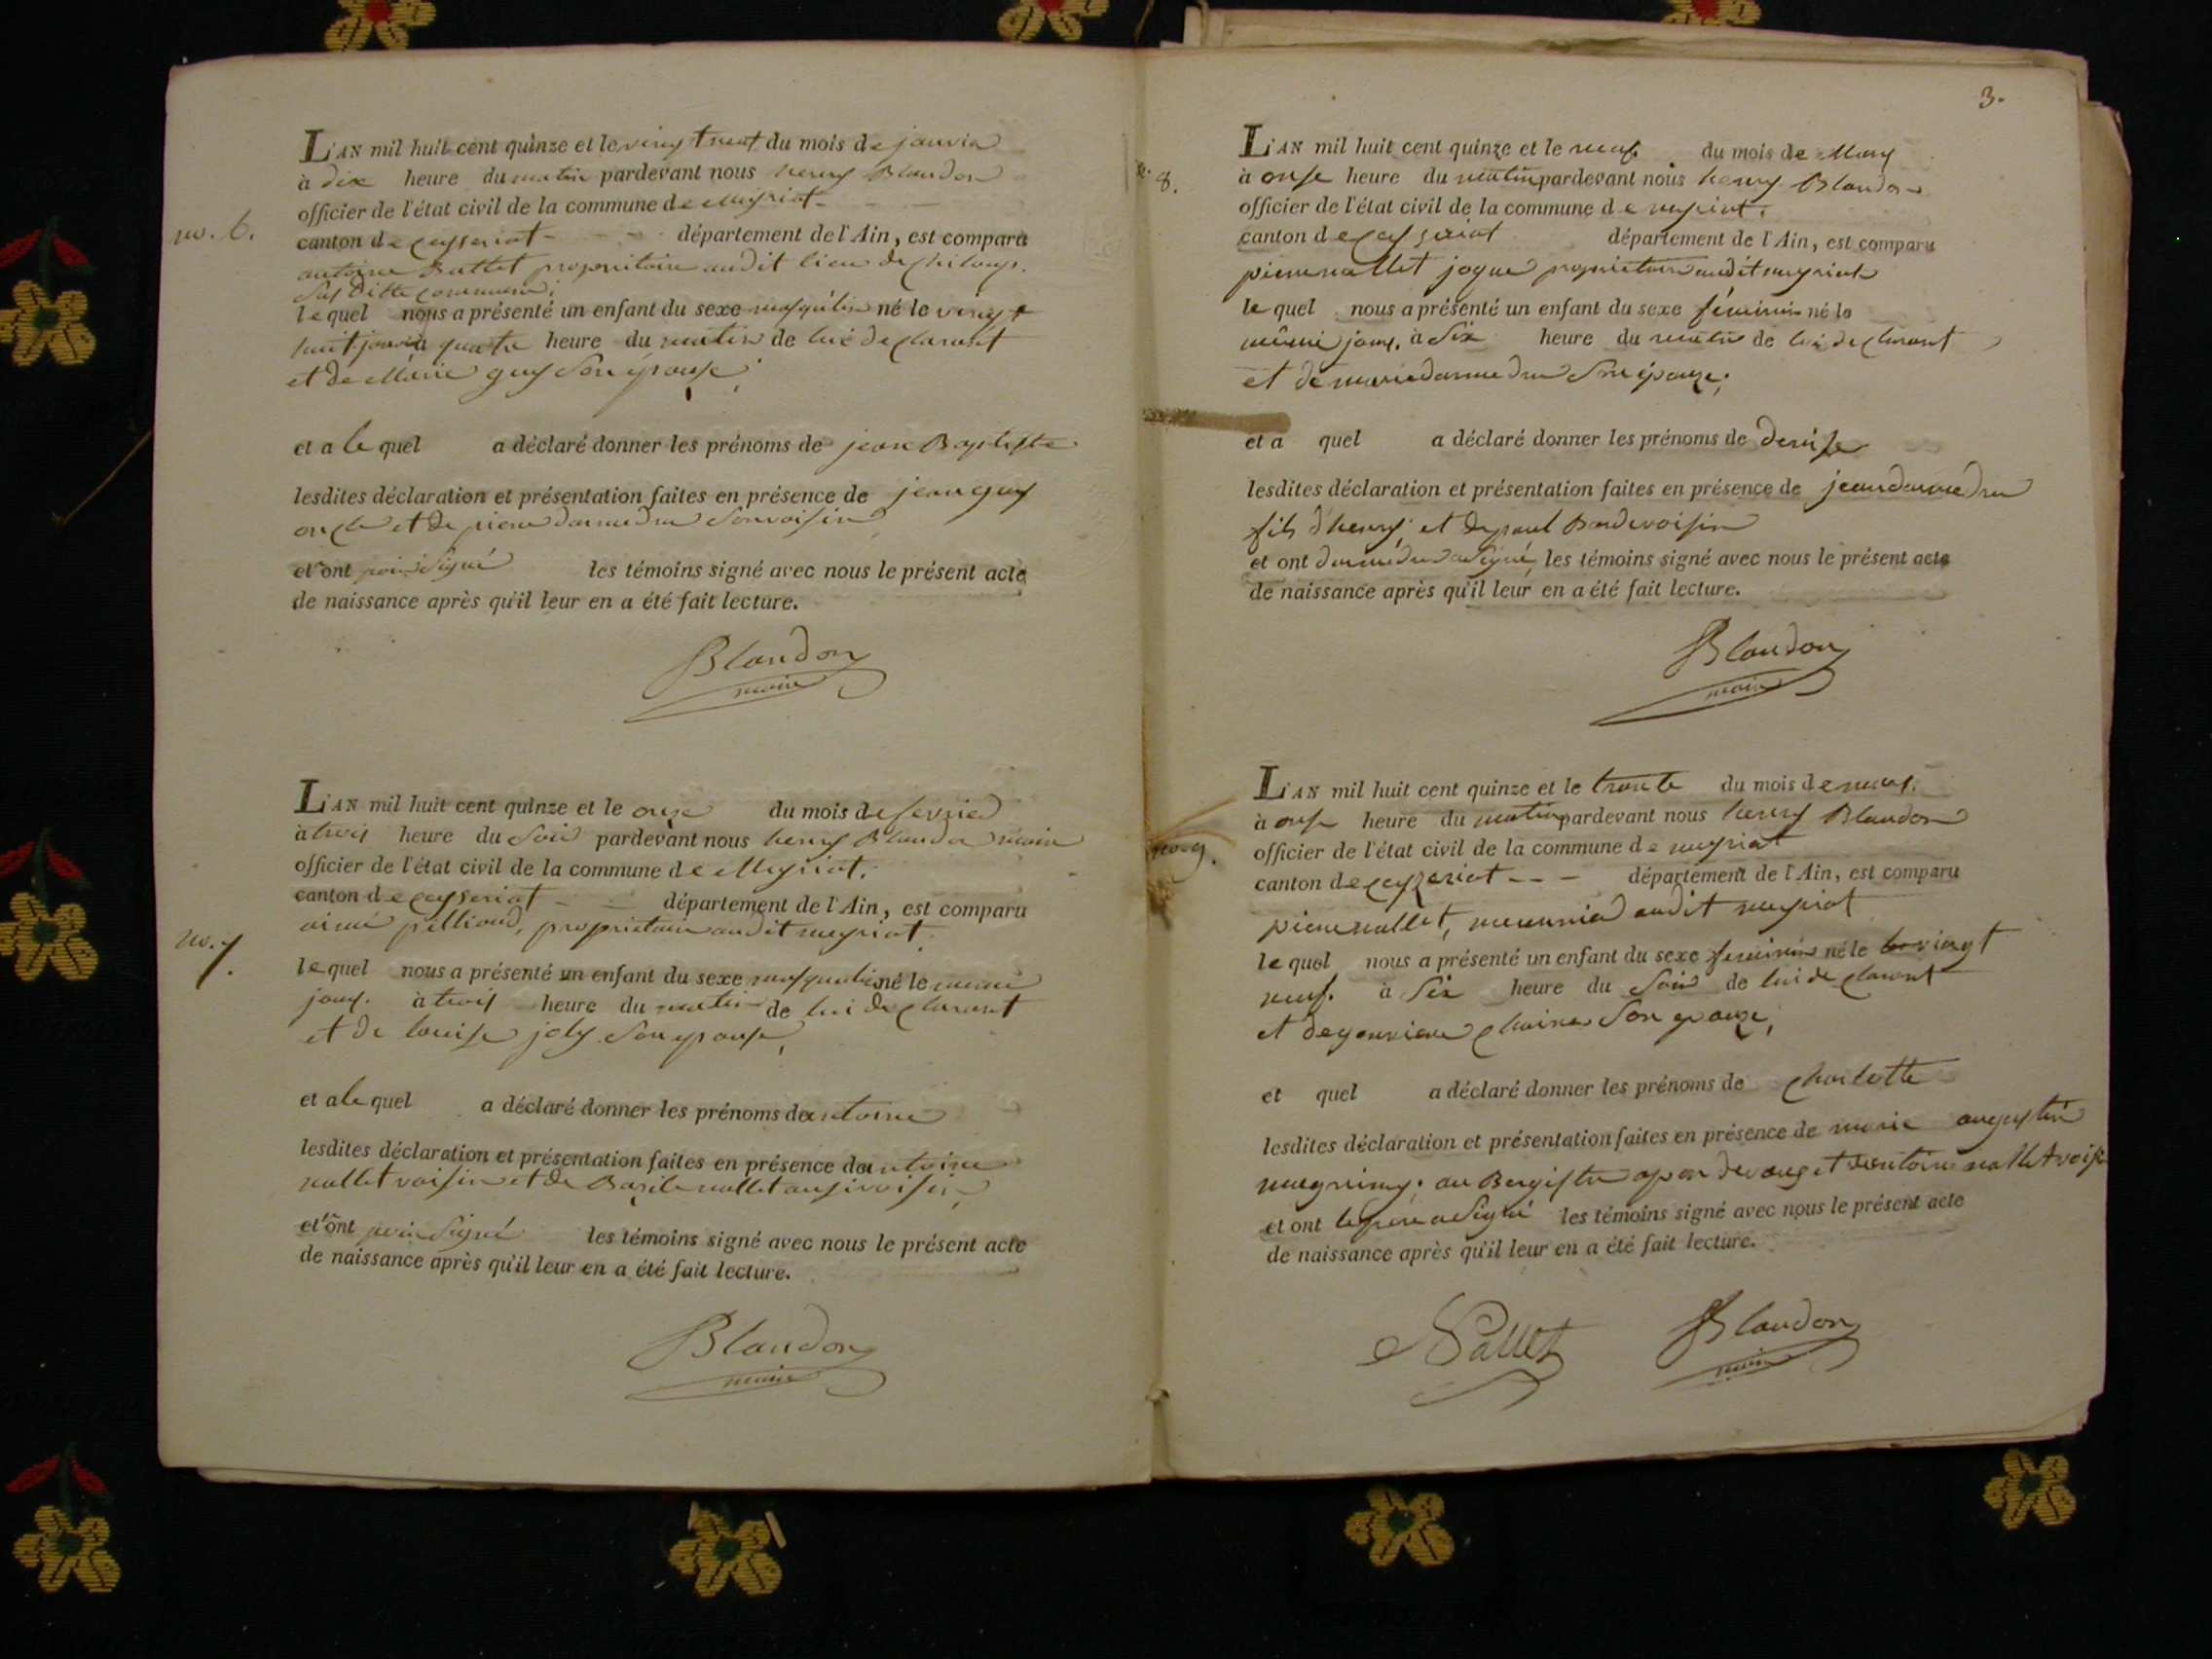 no. 6.
L'AN mil huit cent quinze et le vingt neuf du mois de janvier
à dix heure du matin pardevant nous henry Blandon
officier de l'état civil de la commune de Meyriat
canton de Ceyseriat département de l'Ain, est comparu
antoine Buttet propriétaire audit lieu de
Susditte commune;
lequel nous a présenté un enfant du sexe masqulin né le vingt
huit janvier à quatre heure du matin de lui declarant
et de Marie guy Son épouse;
et a le quel a déclaré donner les prénoms de jean Baptiste
lesdites déclaration et présentation faites en présence de jean guy
oncle et de pierre Son voisin
et ont poin Signé les témoins signé avec nous le présent acte
de naissance après qu'il leur en a été fait lecture.
Blandon
maire
no. 7.
L'AN mil huit cent quinze et le onze du mois de fevrier
à trois heure du Soir pardevant nous henry Blandon maire
officier de l'état civil de la commune de Meyriat.
canton de Ceyseriat département de l'Ain, est comparu
aimé pellioud, propriétaire audit meyriat.
lequel nous a présenté un enfant du sexe né le meme
jour. à trois heure du matin de lui declarant
et de louise joly Son epouse,
et a le quel a déclaré donner les prénoms de antoine
lesdites déclaration et présentation faites en présence de antoine
nallet voisin et de Basile nallet ausi voisin
et ont poin Signé les témoins signé avec nous le présent acte
de naissance après qu'il leur en a été fait lecture.
Blandon
maire
3.
8.
L'AN mil huit cent quinze et le neuf du mois de Mars
à onse heure du matin pardevant nous henry Blandon
officier de l'état civil de la commune de meyriat.
canton de Ceyseriat département de l'Ain, est comparu
pierre nallet propriétaire audit meyriat
le quel nous a présenté un enfant du sexe féminin né le
même jour. à Six heure du matin de lui declarant
et de marie Son épouze;
et a quel a déclaré donner les prénoms de denise
lesdites déclaration et présentation faites en présence de jean
fils d'henry; et de paul voisin
et ont a Signé les témoins signé avec nous le présent acte
de naissance après qu'il leur en a été fait lecture.
Blandon
maire
no. 9.
L'AN mil huit cent quinze et le trente du mois de mars.
à onse heure du matin pardevant nous henry Blandon
officier de l'état civil de la commune de meyriat
canton de Ceyzeriat département de l'Ain, est comparu
pierre nallet, meunnier audit meyriat
le quel nous a présenté un enfant du sexe feminin né le vingt
neuf. à Six heure du Soir de lui declarant
et de Son epouze,
et quel a déclaré donner les prénoms de charlotte
lesdites déclaration et présentation faites en présence de marie augustin
et d'antoine nallet voisin
et ont le pere a Signé les témoins signé avec nous le présent acte
de naissance après qu'il leur en a été fait lecture.
Nallet Blandon
maire